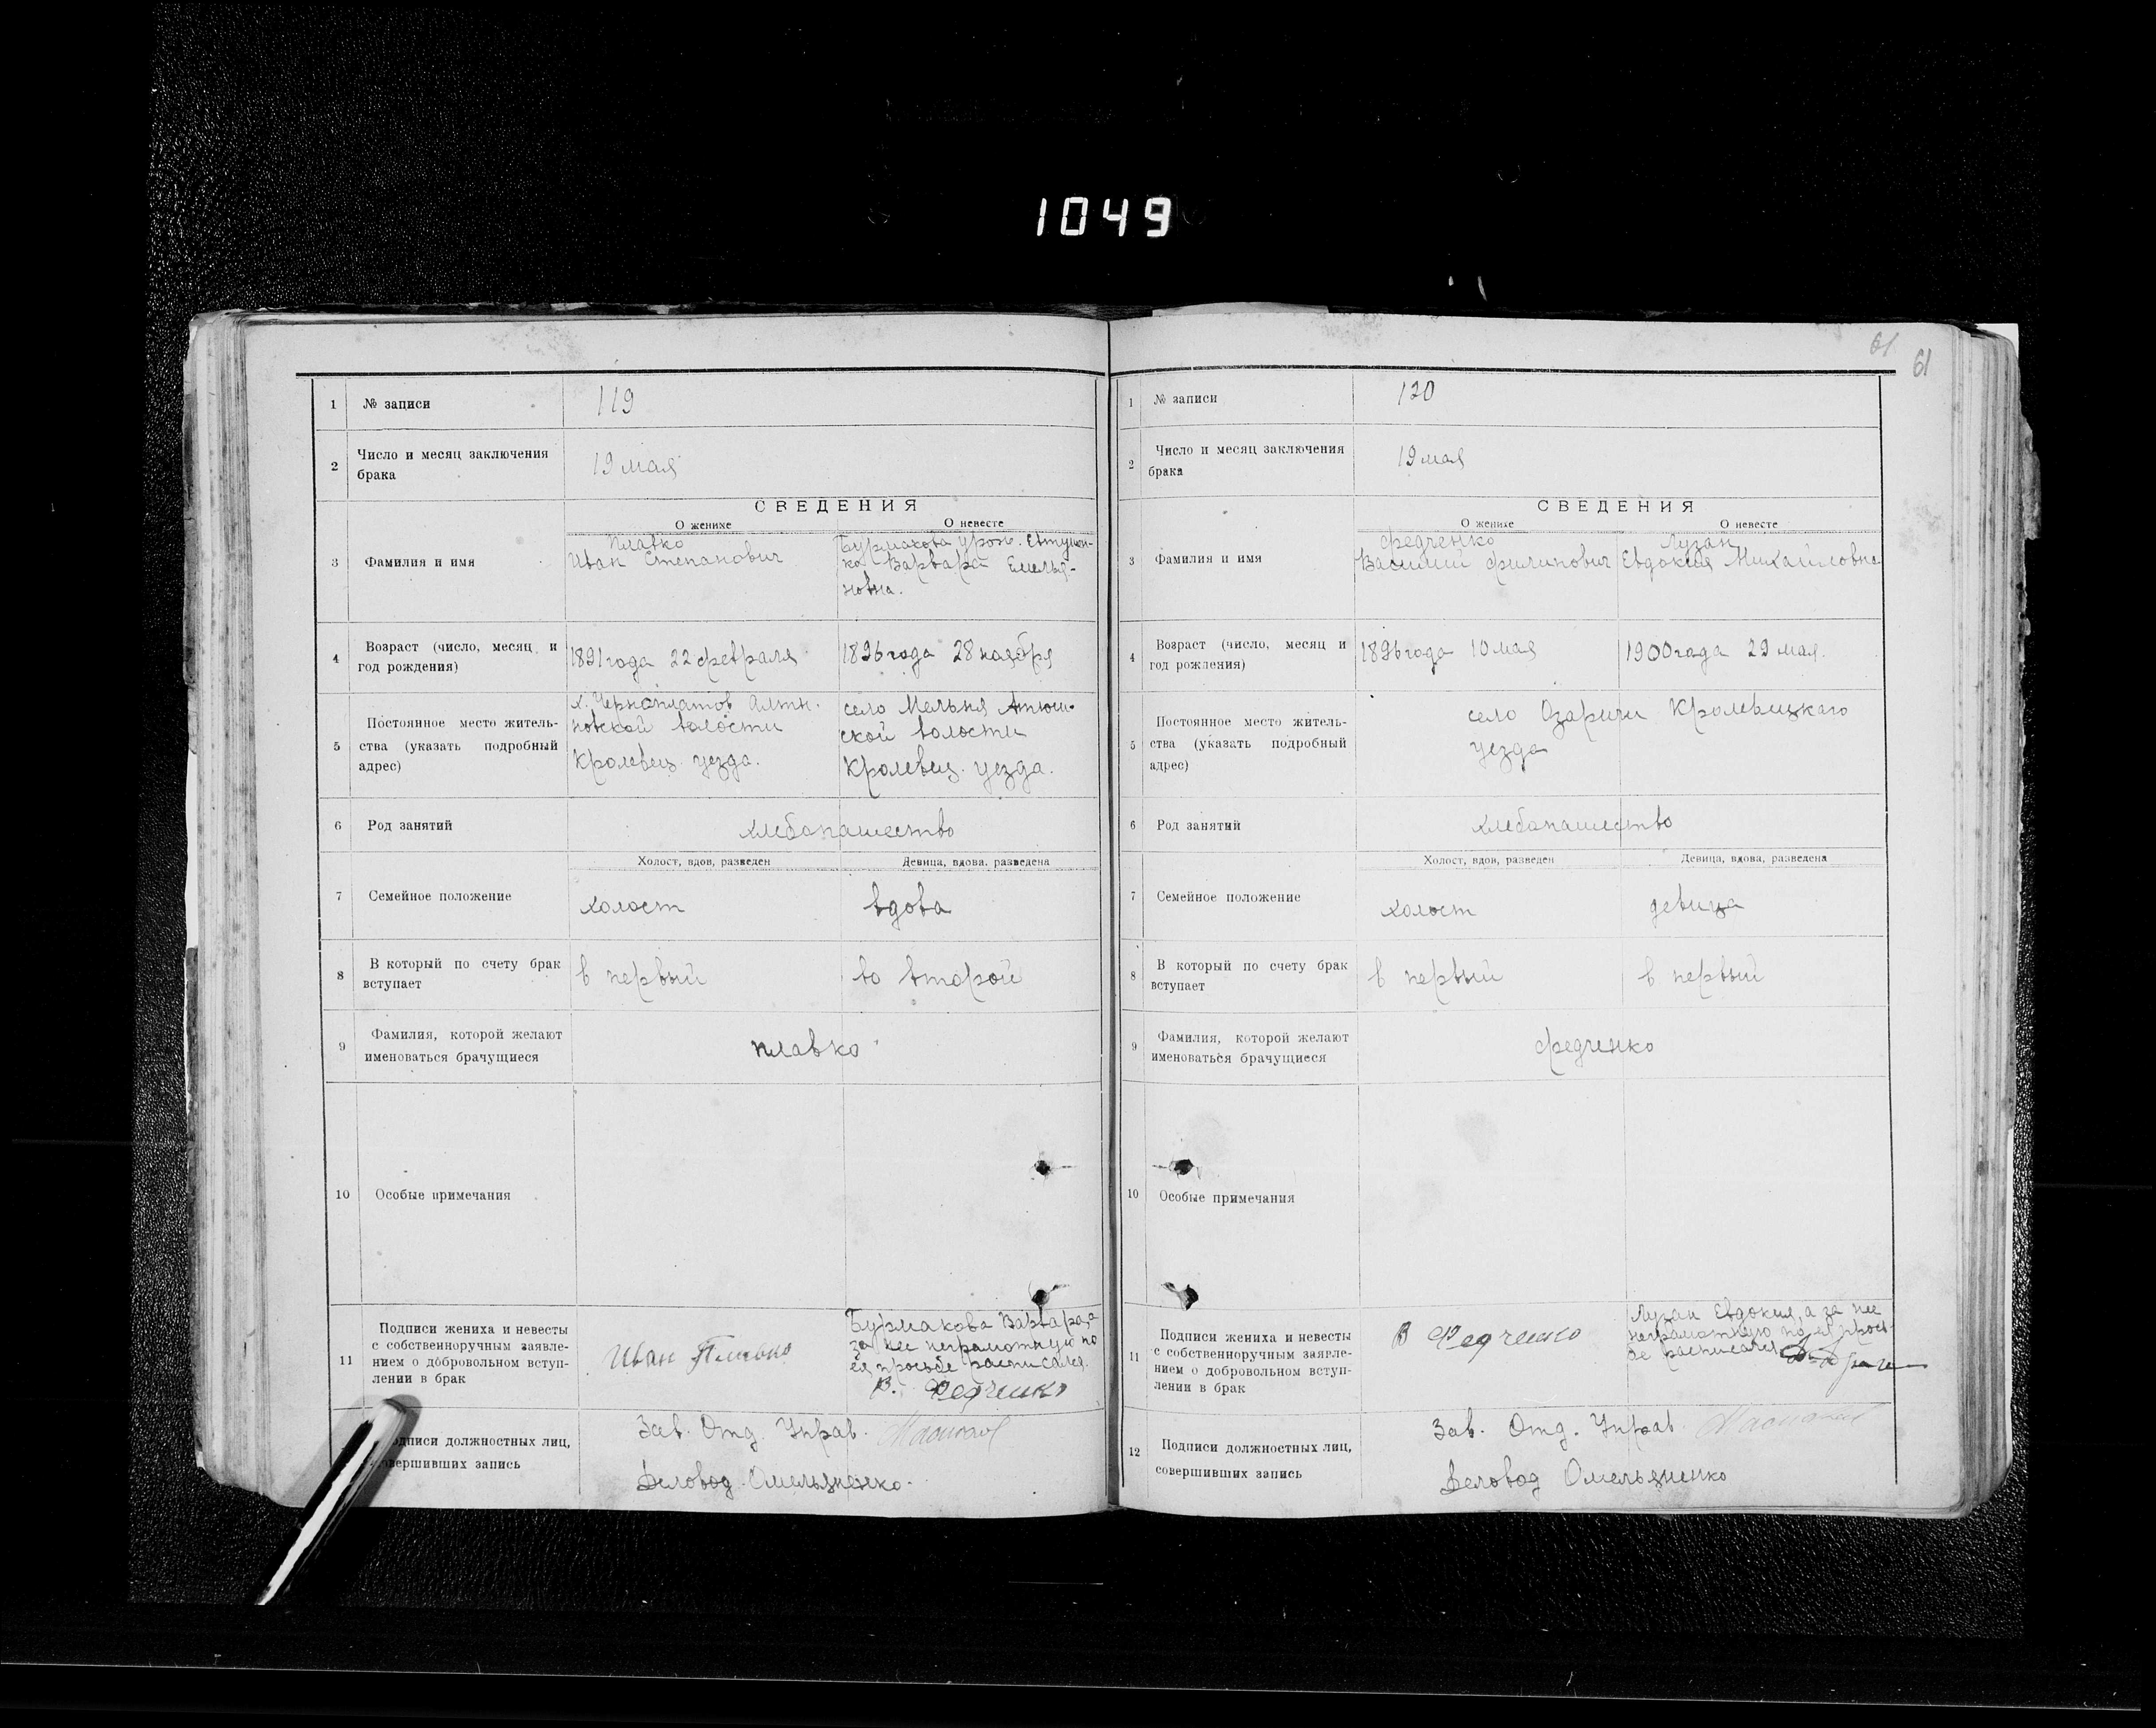 1049
61 61
1 № записи 119
2 Число и месяц заключения
брака
19 мая
СВЕДЕНИЯ
О женихе О невесте
3 Фамилия и имя
Плавко
Иван Степанович
Бурмакова урож. Евтушен-
ко Варвара Емелья-
новна.
4 Возраст (число, месяц и
год рождения)
1891 года 22 февраля
1896 года 28 ноября
5 Постоянное место житель-
ства (указать подробный
адрес)
х. Черноплатов Алтн.
новской волости
Кролевец. уезда.
село Мельня
ской волости
Кролевец. уезда.
6 Род занятий хлебопашество
Холост, вдов, разведен Девица, вдова, разведена
7 Семейное положение холост вдова
8 В который по счету брак
вступает
в первый во второй
9 Фамилия, которой желают
именоваться брачущиеся
Плавко
10 Особые примечания
11 Подписи жениха и невесты
с собственноручным заявле-
нием о добровольном вступ-
лении в брак
Иван Плавко
Бурмакова Варвара, а
за нее неграмотную по
ея просьбе расписался
В. Федченко
Подписи должностных лиц,
совершивших запись
Зав. Отд. Управ.
Деловод. Омельяненко.
1 № записи 120
2 Число и месяц заключения
брака
19 мая
СВЕДЕНИЯ
О женихе О невесте
3 Фамилия и имя
Федченко
Василий Филипович
Лузан
Евдокия Михайловна
4 Возраст (число, месяц и
год рождения)
1896 года 10 мая
1900 года 29 мая.
5 Постоянное место житель-
ства (указать подробный
адрес)
село Озаричи Кролевецкаго
уезда
6 Род занятий хлебопашество
Холост, вдов, разведен Девица, вдова, разведена
7 Семейное положение холост девица
8 В который по счету брак
вступает
в первый в первый
9 Фамилия, которой желают
именоваться брачущиеся
Федченко
10 Особые примечания
11 Подписи жениха и невесты
с собственноручным заявле-
нием о добровольном вступ-
лении в брак
В Федченко
Лузан Евдокия, а за нее
неграмотную по ея прось-
бе расписался
12 Подписи должностных лиц,
совершивших запись
Зав. Отд. Управ.
Деловод Омельяненко